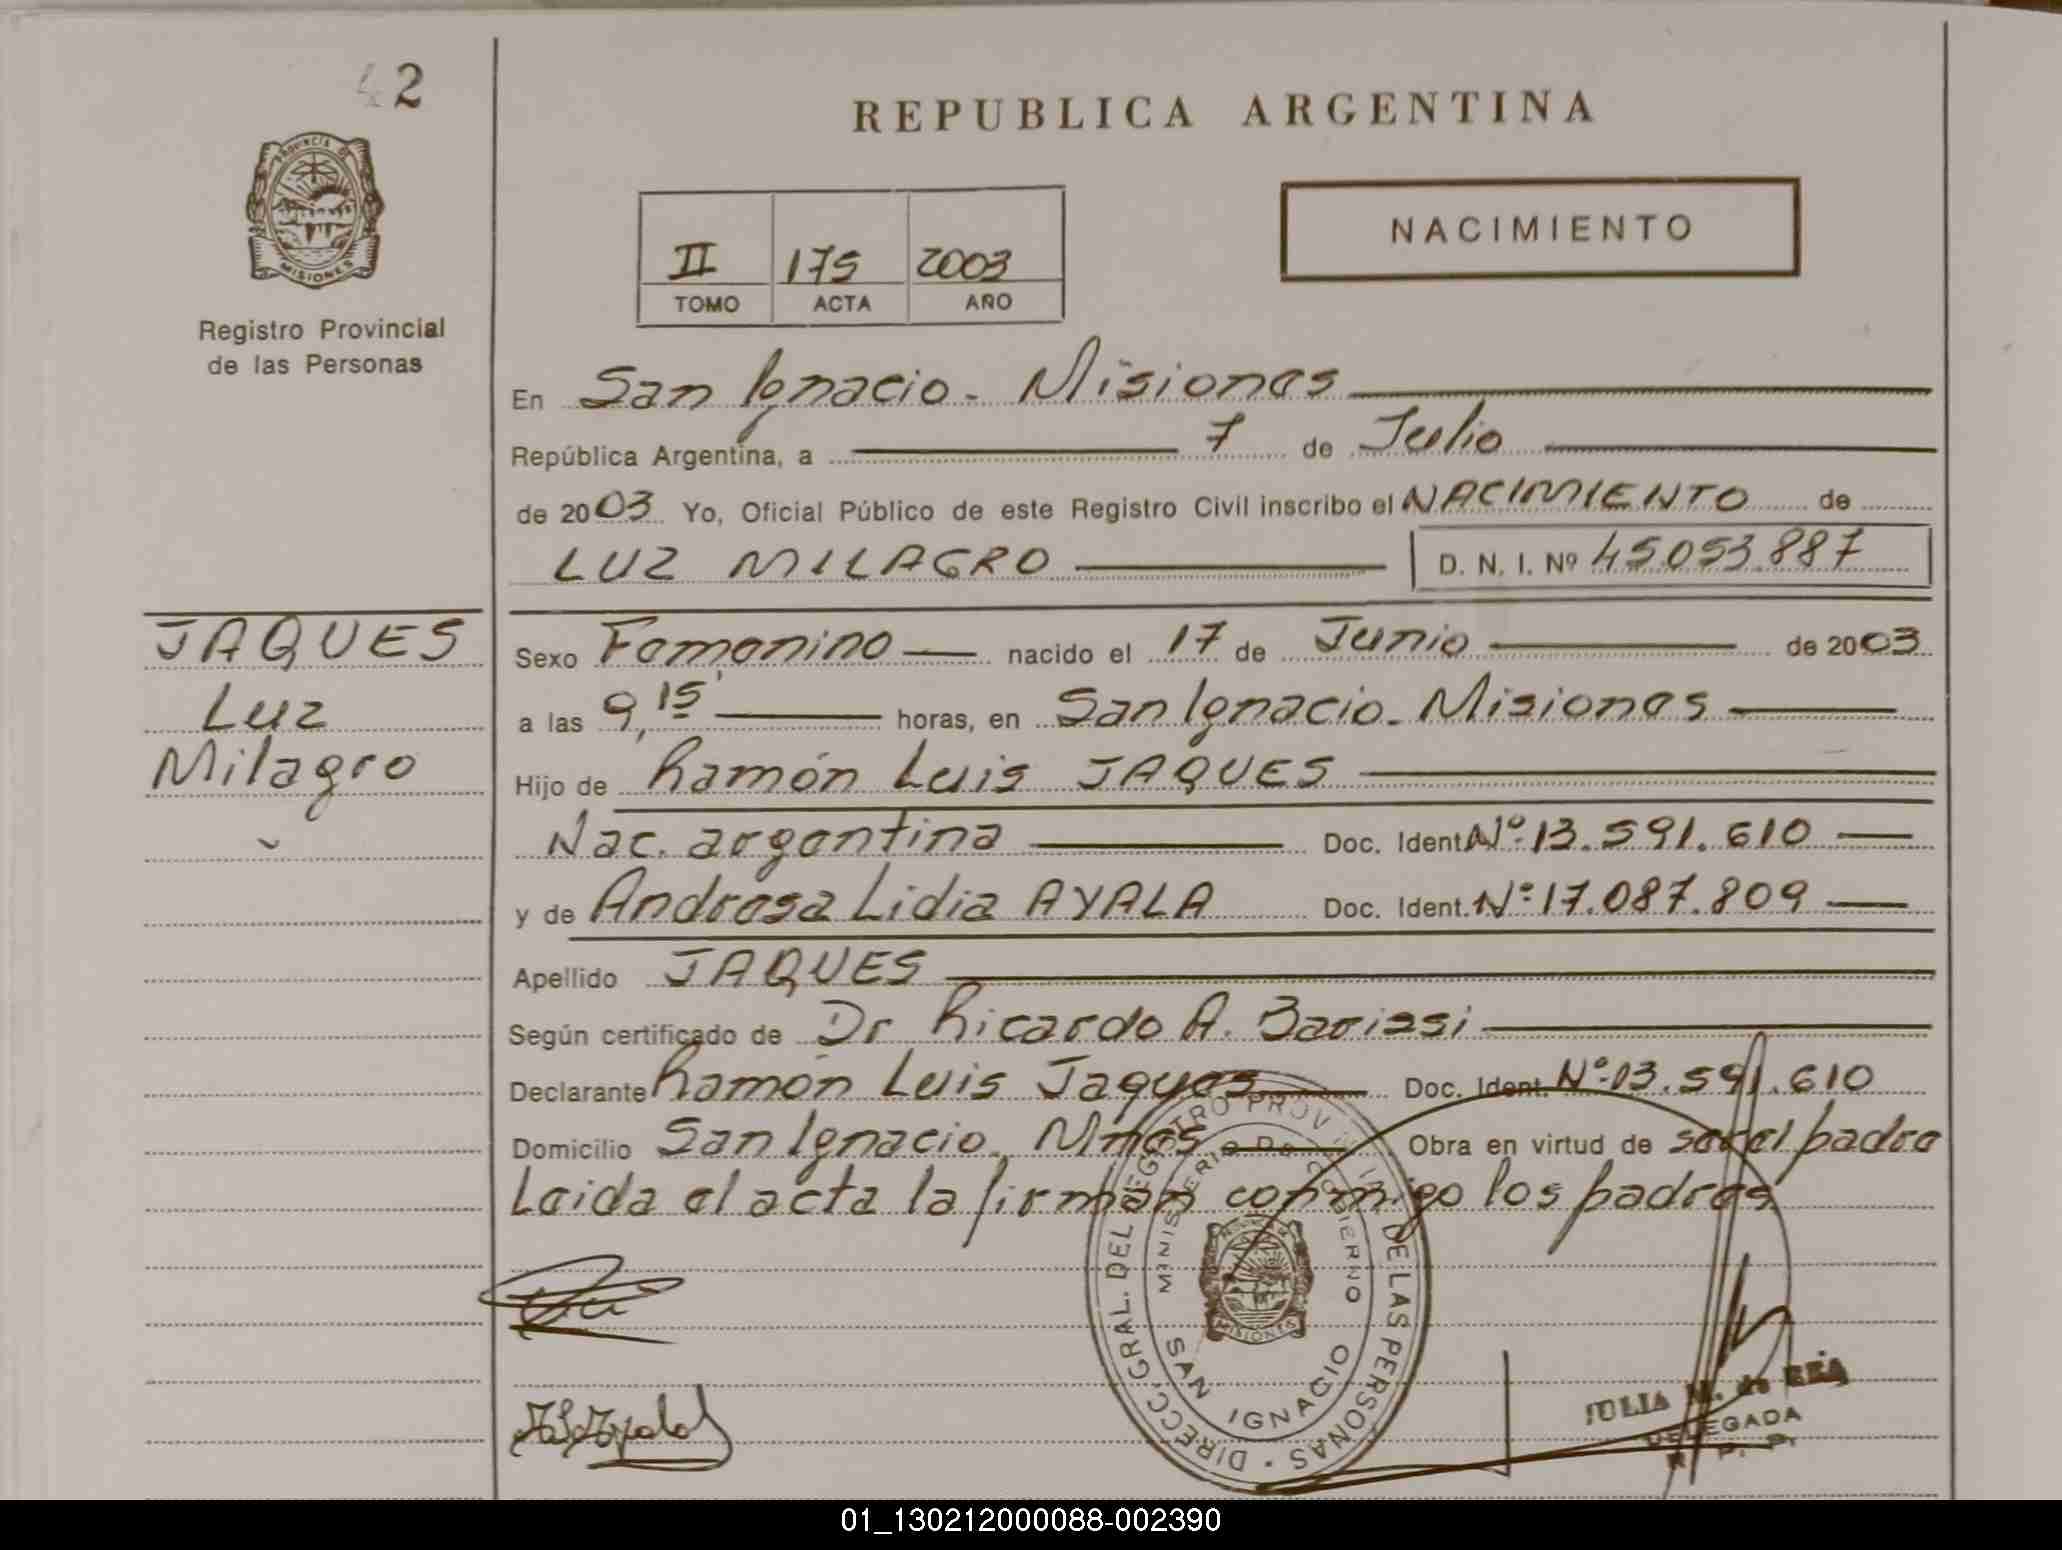 42
REPUBLICA ARGENTINA
PROVINCIA DE
MISIONES
Registro Provincial
de las Personas
NACIMIENTO
II 175 2003
TOMO ACTA AÑO
En San Ignacio - Misiones
República Argentina, a 7 de Julio
de 2003 Yo, Oficial Público de este Registro Civil inscribo el NACIMIENTO de
LUZ MILAGRO D. N. I. Nº 45.053.887
JAQUES
Luz
Milagro
Sexo Femenino nacido el 17 de Junio de 2003
a las 9,15 horas, en San Ignacio - Misiones
Hijo de Ramón Luis JAQUES
Nac. argentina Doc. Ident. Nº 13.591.610
y de Andresa Lidia AYALA Doc. Ident. Nº 17.087.809
Apellido JAQUES
Según certificado de Dr Ricardo A. Barissi
Declarante Ramón Luis Jaques Doc. Ident. Nº 13.591.610
Domicilio San Ignacio. Mnes Obra en virtud de ser el padre
Leida el acta la firman conmigo los padres
DIRECC. GRAL. DEL REGISTRO PROVINCIAL DE LAS PERSONAS
MINISTERIO DE GOBIERNO
MISIONES
SAN IGNACIO
JULIA M. de
DELEGADA
R. P. P.
01_130212000088-002390